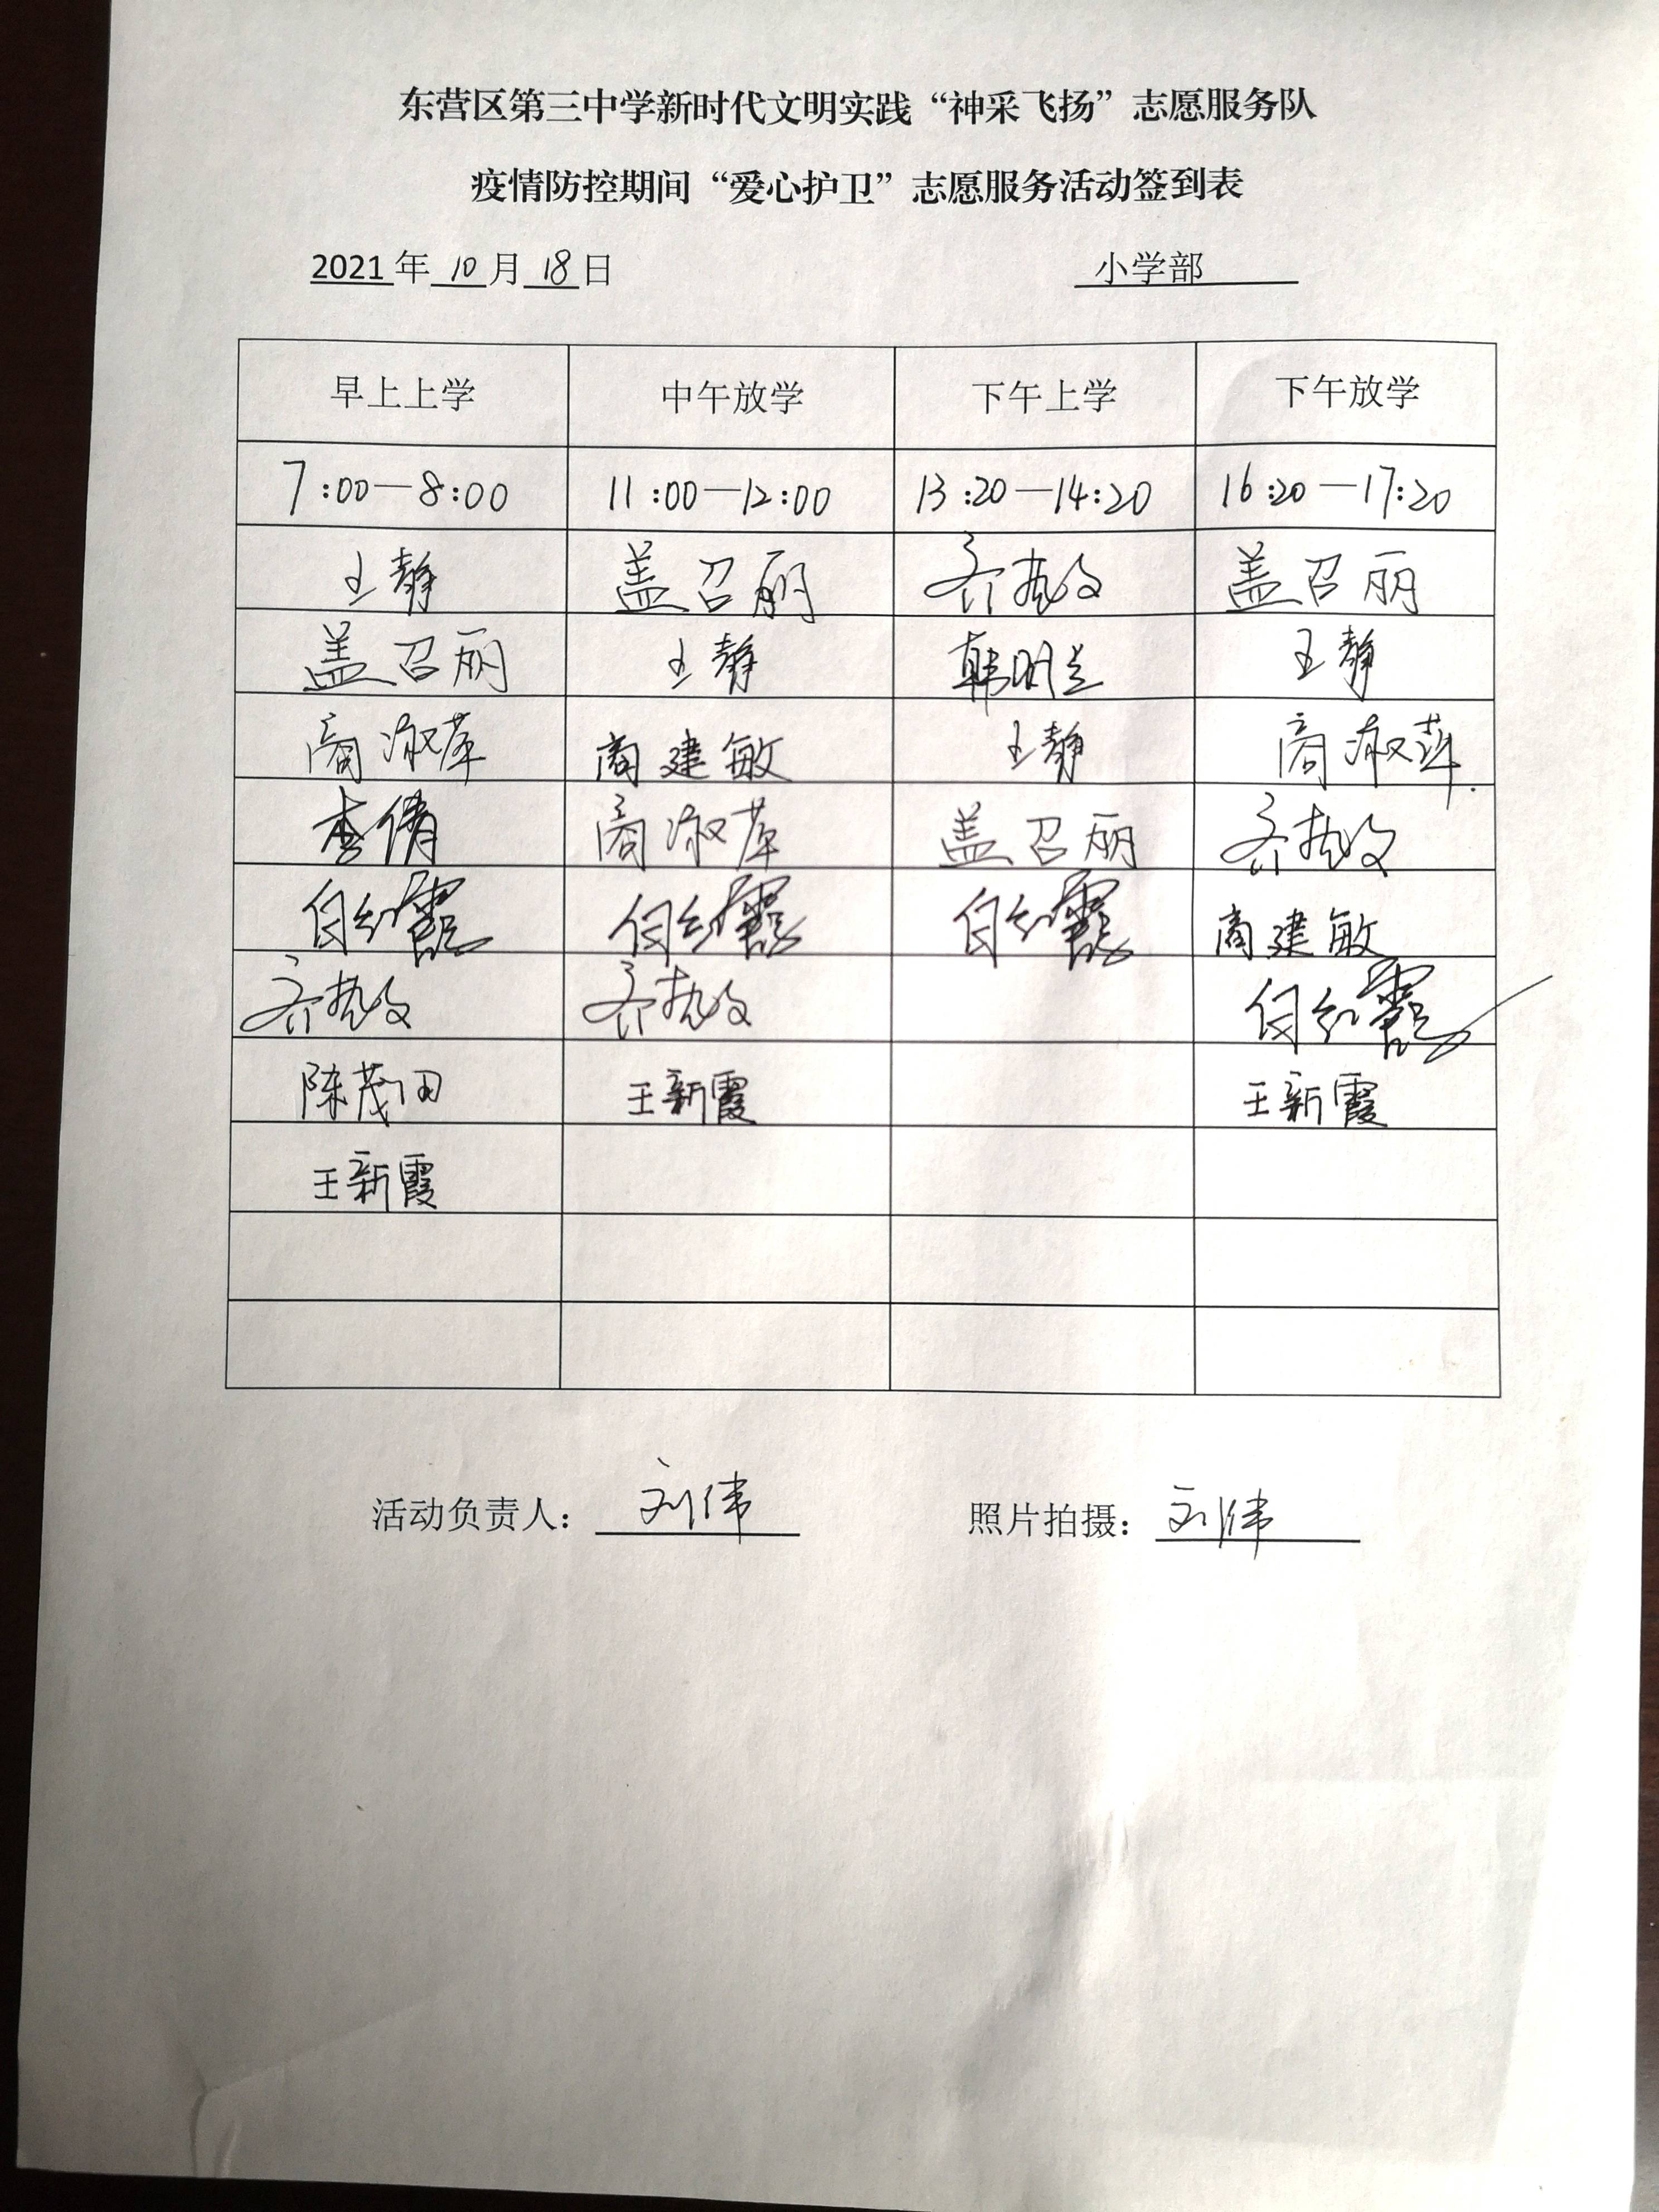 东营区第三中学新时代文明实践“神采飞扬”志愿服务队
疫情防控期间“爱心护卫”志愿服务活动签到表
2021年 10 月 18 日 小学部
早上上学 中午放学 下午上学 下午放学
7:00—8:00 11:00—12:00 13:20—14:20 16:20—17:20
王静 盖召丽 盖召丽
盖召丽 王静 韩明兰 王静
商淑萍 商建敏 王静 商淑萍
李倩 商淑萍 盖召丽
商建敏
陈茂田 王新霞 王新霞
王新霞
活动负责人：刘伟 照片拍摄：刘伟